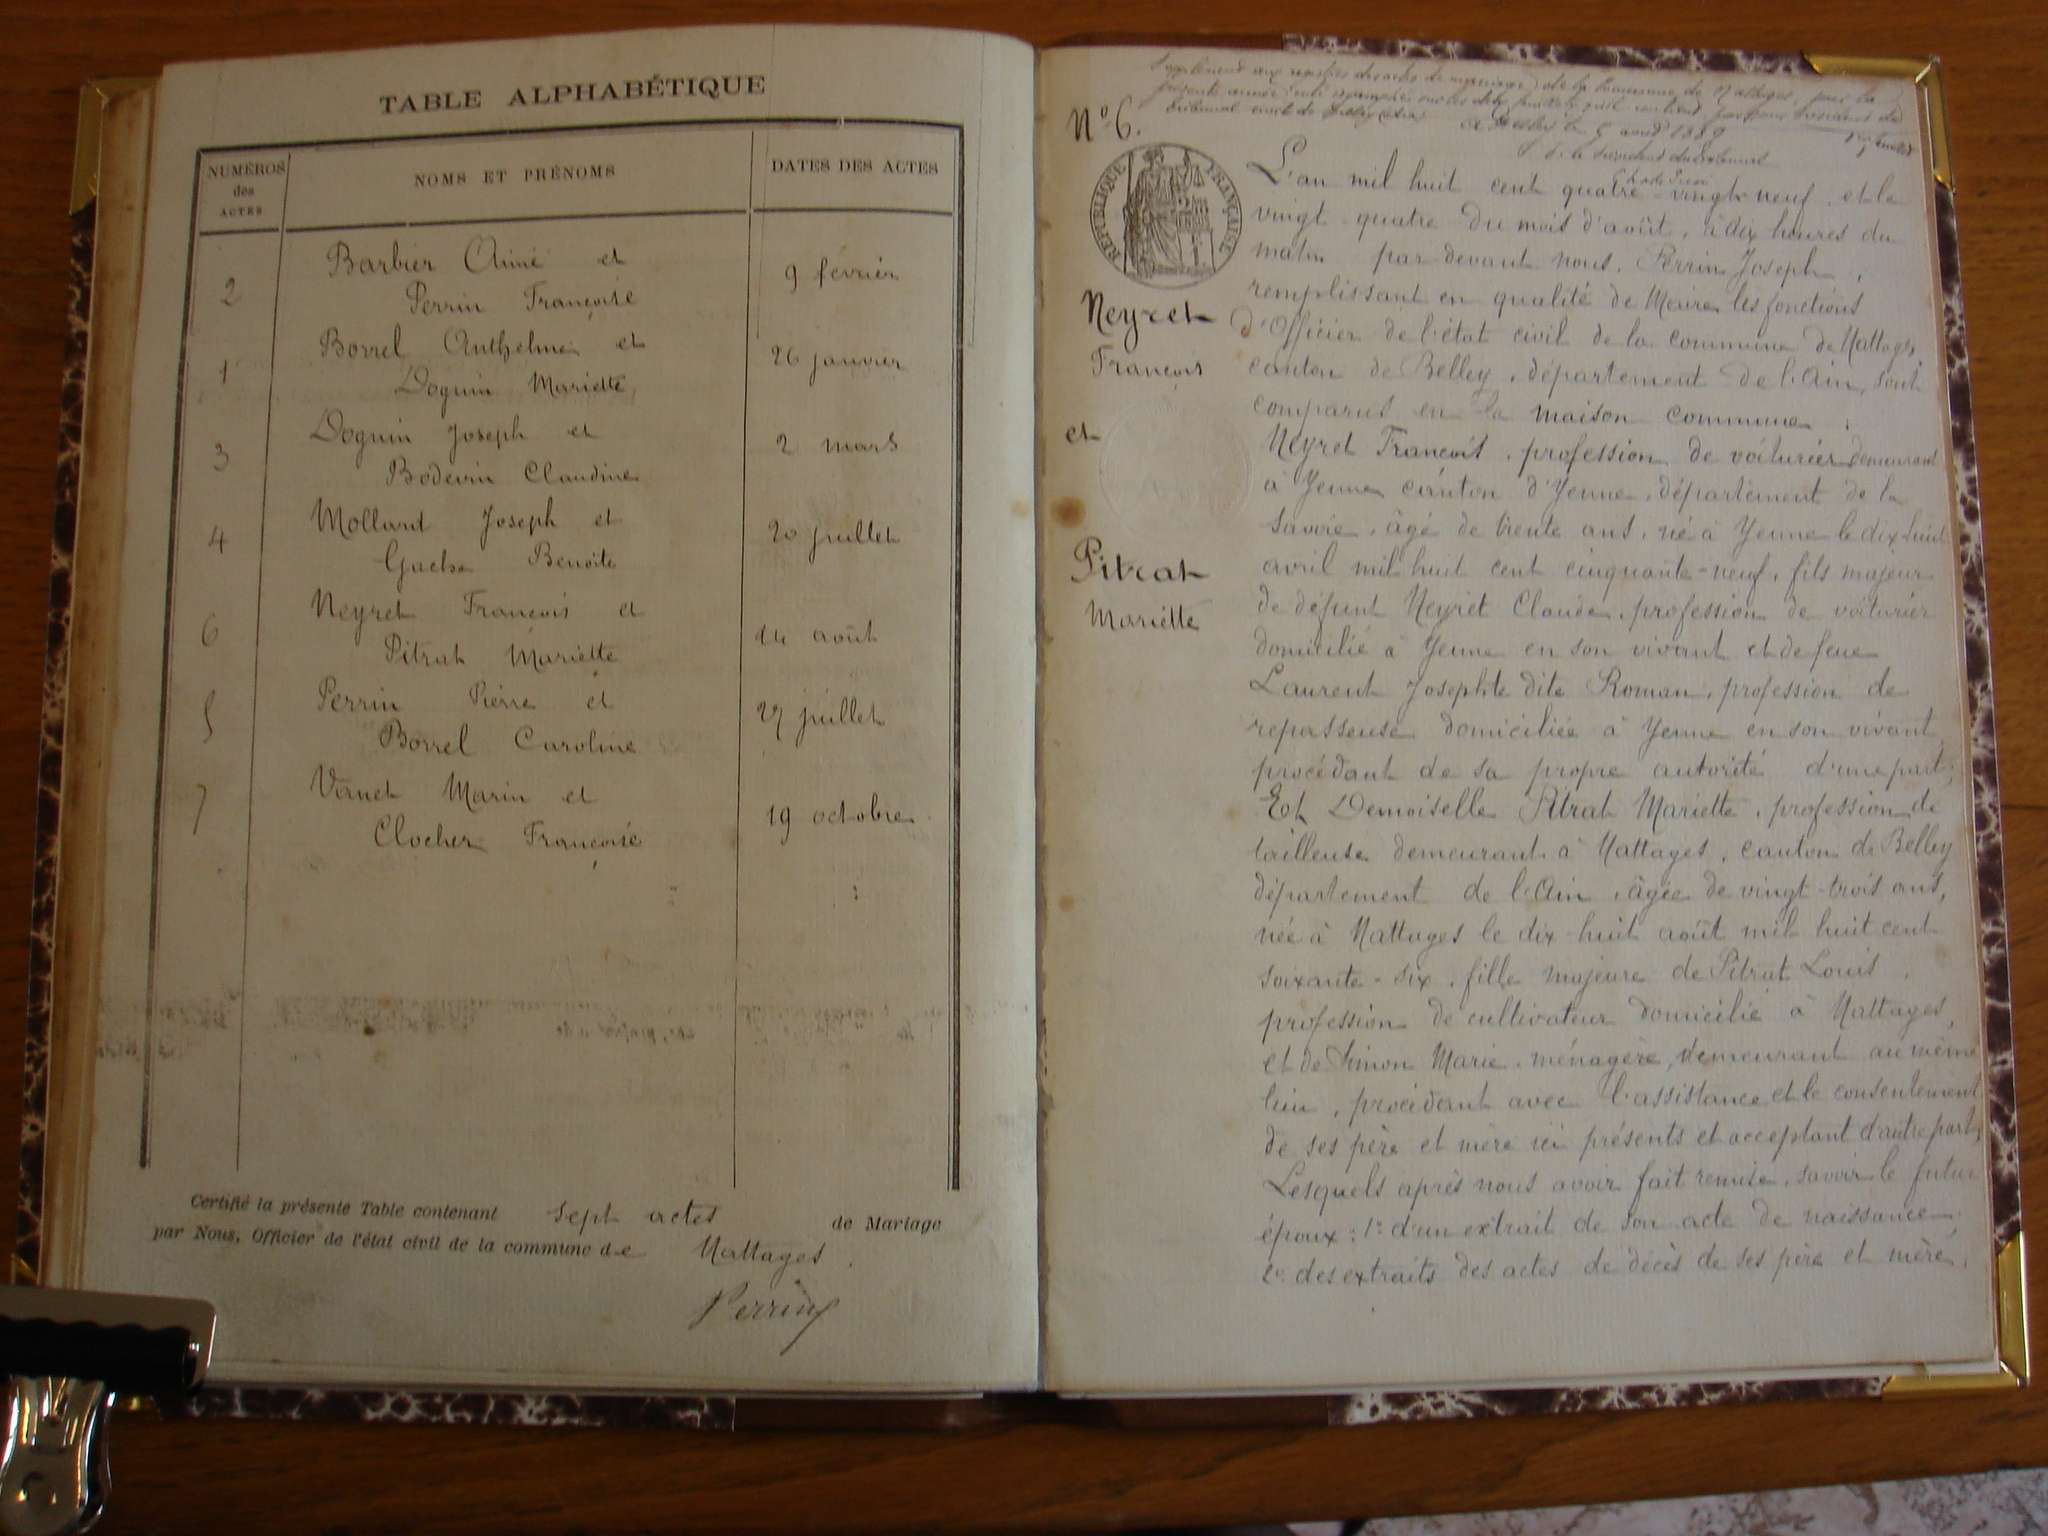 TABLE ALPHABÉTIQUE
NUMÉROS des ACTES
NOMS ET PRÉNOMS
DATES DES ACTES
2 Barbier Aimé et
Perrin Françoise
9 février
1 Borrel Anthelme et
Doguin Mariette
26 janvier
3 Doguin Joseph et
Bodevin Claudine
2 mars
4 Mollard Joseph et
Gache Benoite
20 juillet
6 Neyret François et
Pitrat Mariette
août
5 Perrin Pierre et
Borrel Caroline
27 juillet
7 Vernet Marin et
Clocher Françoise
19 octobre
Certifié la présente Table contenant sept actes de Mariage
par Nous, Officier de l'état civil de la commune de Nattages.
Perrin
Supplément aux registres des actes de mariage de la commune de Nattages, pour la
présente année
tribunal civil de Belley
à Belley le 5 août 1889
1er feuillet
No 6.
RÉPUBLIQUE FRANÇAISE
Neyret
François
et
Pitrat
Mariette
L'an mil huit cent quatre-vingt-neuf et le
vingt-quatre du mois d'août, à dix heures du
matin par devant nous, Perrin Joseph,
remplissant en qualité de Maire les fonctions
d'Officier de l'état civil de la commune de Nattages,
canton de Belley, département de l'Ain, sont
comparus en la maison commune.
Neyret François, profession de voiturier demeurant
à Yenne canton d'Yenne, département de la
Savoie, âgé de trente ans, né à Yenne le dix-huit
avril mil huit cent cinquante-neuf, fils majeur
de défunt Neyret Claude, profession de voiturier
domicilié à Yenne en son vivant et de feue
Laurent Josephte dite Roman, profession de
repasseuse domiciliée à Yenne en son vivant,
procédant de sa propre autorité d'une part;
Et Demoiselle Pitrat Mariette, profession de
tailleuse demeurant à Nattages, canton de Belley
département de l'Ain, âgée de vingt-trois ans,
née à Nattages le dix-huit août mil huit cent
soixante-six, fille majeure de Pitrat Louis,
profession de cultivateur domicilié à Nattages,
et de Simon Marie, ménagère, demeurant au même
lieu, procédant avec l'assistance et le consentement
de ses père et mère ici présents et acceptant d'autre part,
Lesquels après nous avoir fait remise, savoir le futur
époux: 1º d'un extrait de son acte de naissance.
2º des extraits des actes de décès de ses père et mère,